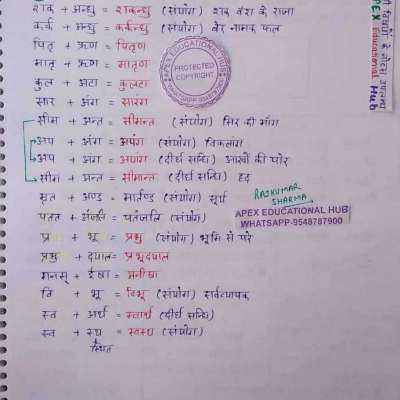 शक + अन्धु = शकन्धु (संयोग) शक वंश के राजा
कर्क + अन्धु = कर्कन्धु (संयोग) बेर नामक फल
पितृ + ऋण = पितृण
मातृ + ऋण = मातृण
कुल + अटा = कुलटा
सार + अंग = सारंग
सीम + अन्त = सीमन्त (संयोग) सिर की मांग
अप + अंग = अपंग (संयोग) विकलांग
अप + अंग = अपांग (दीर्घ सन्धि) आंखों की पोर
सीम + अन्त = सीमान्त (दीर्घ सन्धि) हद
मृत + अण्ड = मार्तण्ड (संयोग) सूर्य
पतत + अंजलि = पतंजलि (संयोग)
प्र + भू = प्रभु (संयोग) भूमि से परे
प्रभु + दयाल = प्रभूदयाल
मनस् + ईषा = मनीषा
वि + भू = विभू (संयोग) सर्वव्यापक
स्व + अर्थ = स्वार्थ (दीर्घ सन्धि)
स्व + स्थ = स्वस्थ (संयोग)
स्थित
APEX EDUCATIONAL HUB
PROTECTED
COPYRIGHT
RAJKUMAR
SHARMA
APEX EDUCATIONAL HUB
WHATSAPP-9548787900
के नोट्स उपलब्ध
APEX Educational
Hub